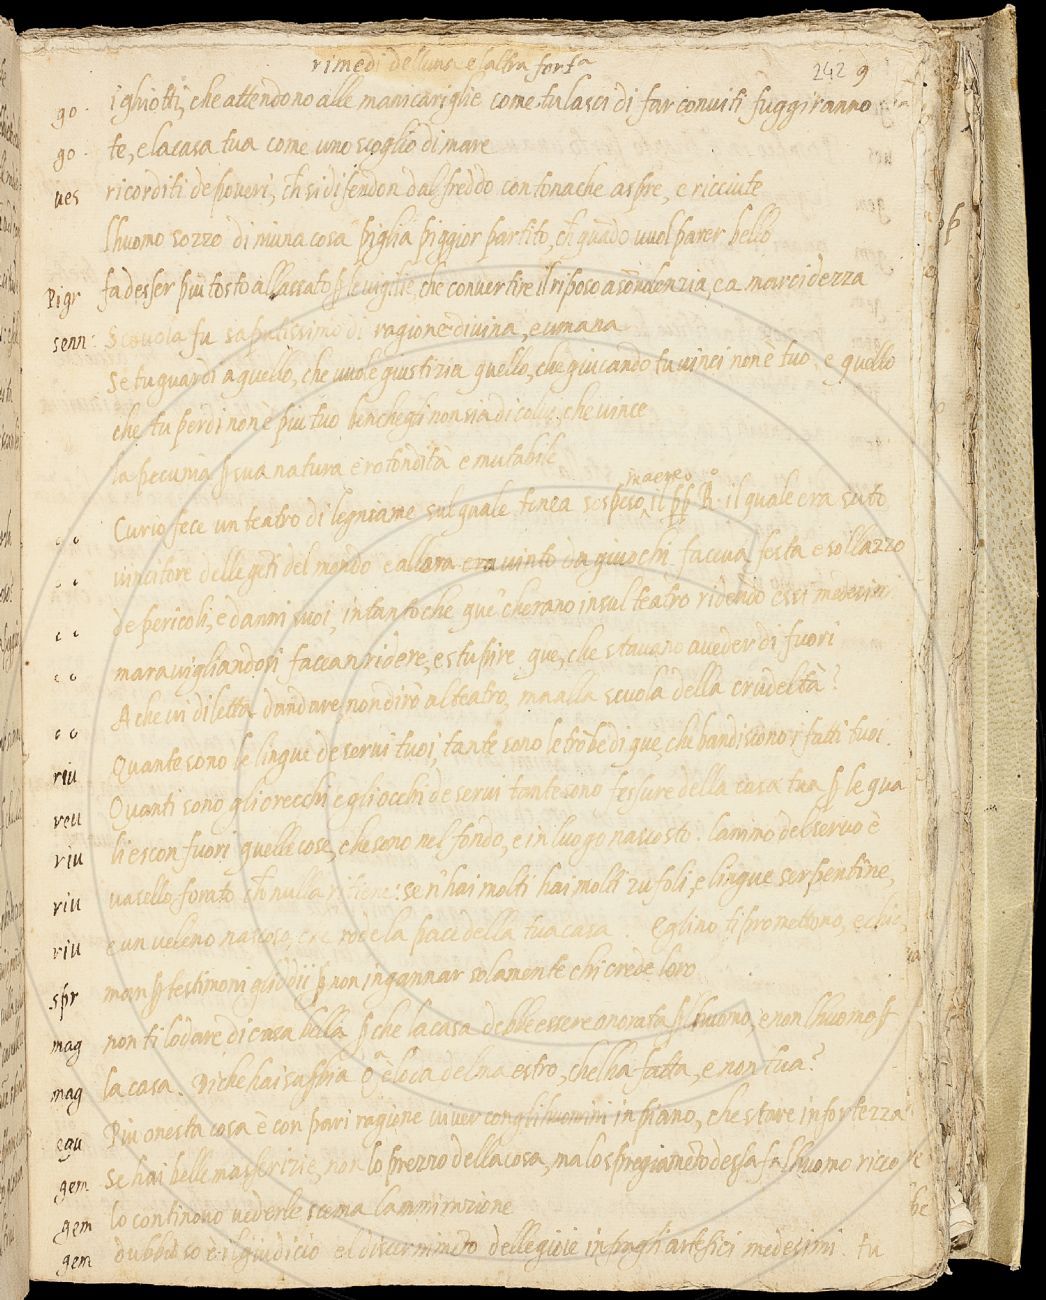 rimedi dell una e l altra fort.ª 242 9
go . i ghiotti, che attendono alle manicariglie come tu lasci di far conviti fuggiranno
go te, e la casa tua come uno scoglio di mare
ues ricorditi de poveri, ch si difendon dal freddo con tonache aspre, e ricciute
lhuomo sozzo di niuna cosa piglia piggior partito, ch quãdo vuol parer bello
Pigr fa desser piu tosto allassato p le vigilie, che convertire il riposo a sõnolenzia, e a marcidezza
senn: Scevola fu saputissimo di ragione divina, e umana
se tu guardi a quello, che vuole giustizia quello, che giucando tu vinci non è tuo, e quello
che tu perdi non è piu tuo benchegli non sia di colui, che vince
la pecunia p sua natura è rotondità e mutabile
in aere
Curio fece un teatro di legniame sul quale tenea sospeso il pp R. il quale era stato
vincitore delle gẽti del mondo e allora era vinto da giuochi faceva festa e sollazzo
de pericoli, e danni suoi, in tanto che que cherano in sul teatro ridendo essi medesimi
maravigliandosi faccan ridere, e stupire que, che stavano a veder di fuori
A che vi diletta dandare non dirò al teatro, ma alla scuola della crudeltà?
riu Quante sono le lingue de servi tuoi, tante sono le trõbe di que, che bandiscono i fatti tuoi.
reu Quanti sono gli orecchi e gli occhi de servi tante sono fessure della casa tua p le qua
riu li escon fuori quelle cose, che sono nel fondo, e in luogo nascosto. lanimo del servo è
riu vasello forato ch nulla ritiene: se n' hai molti hai molti zufoli, e lingue serpentine,
riu e un veleno nascoso, che rode la pace della tua casa. Eglino ti promettono, e chia,
spr man p testimoni gliddii p non ingannar solamente chi crede loro
mag non ti lodare di casa bella p che la casa debbe essere onorata p lhuomo, e non lhuomo p
mag la casa. diche hai sappia õ è loda del maestro, chellha fatta, e non tua?
equ Piu onesta cosa è con pari ragione viver congli huomini in piano, che stare in fortezza
gem se hai belle masserizie, non lo prezzo della cosa, ma lo spregiamẽto dessa fa lhuomo ricco
gem lo continovo vederle scema lammirazione
gem dubbioso è il giudicio e l discernimẽto delle gioie in fra gli artefici medesimi. tu